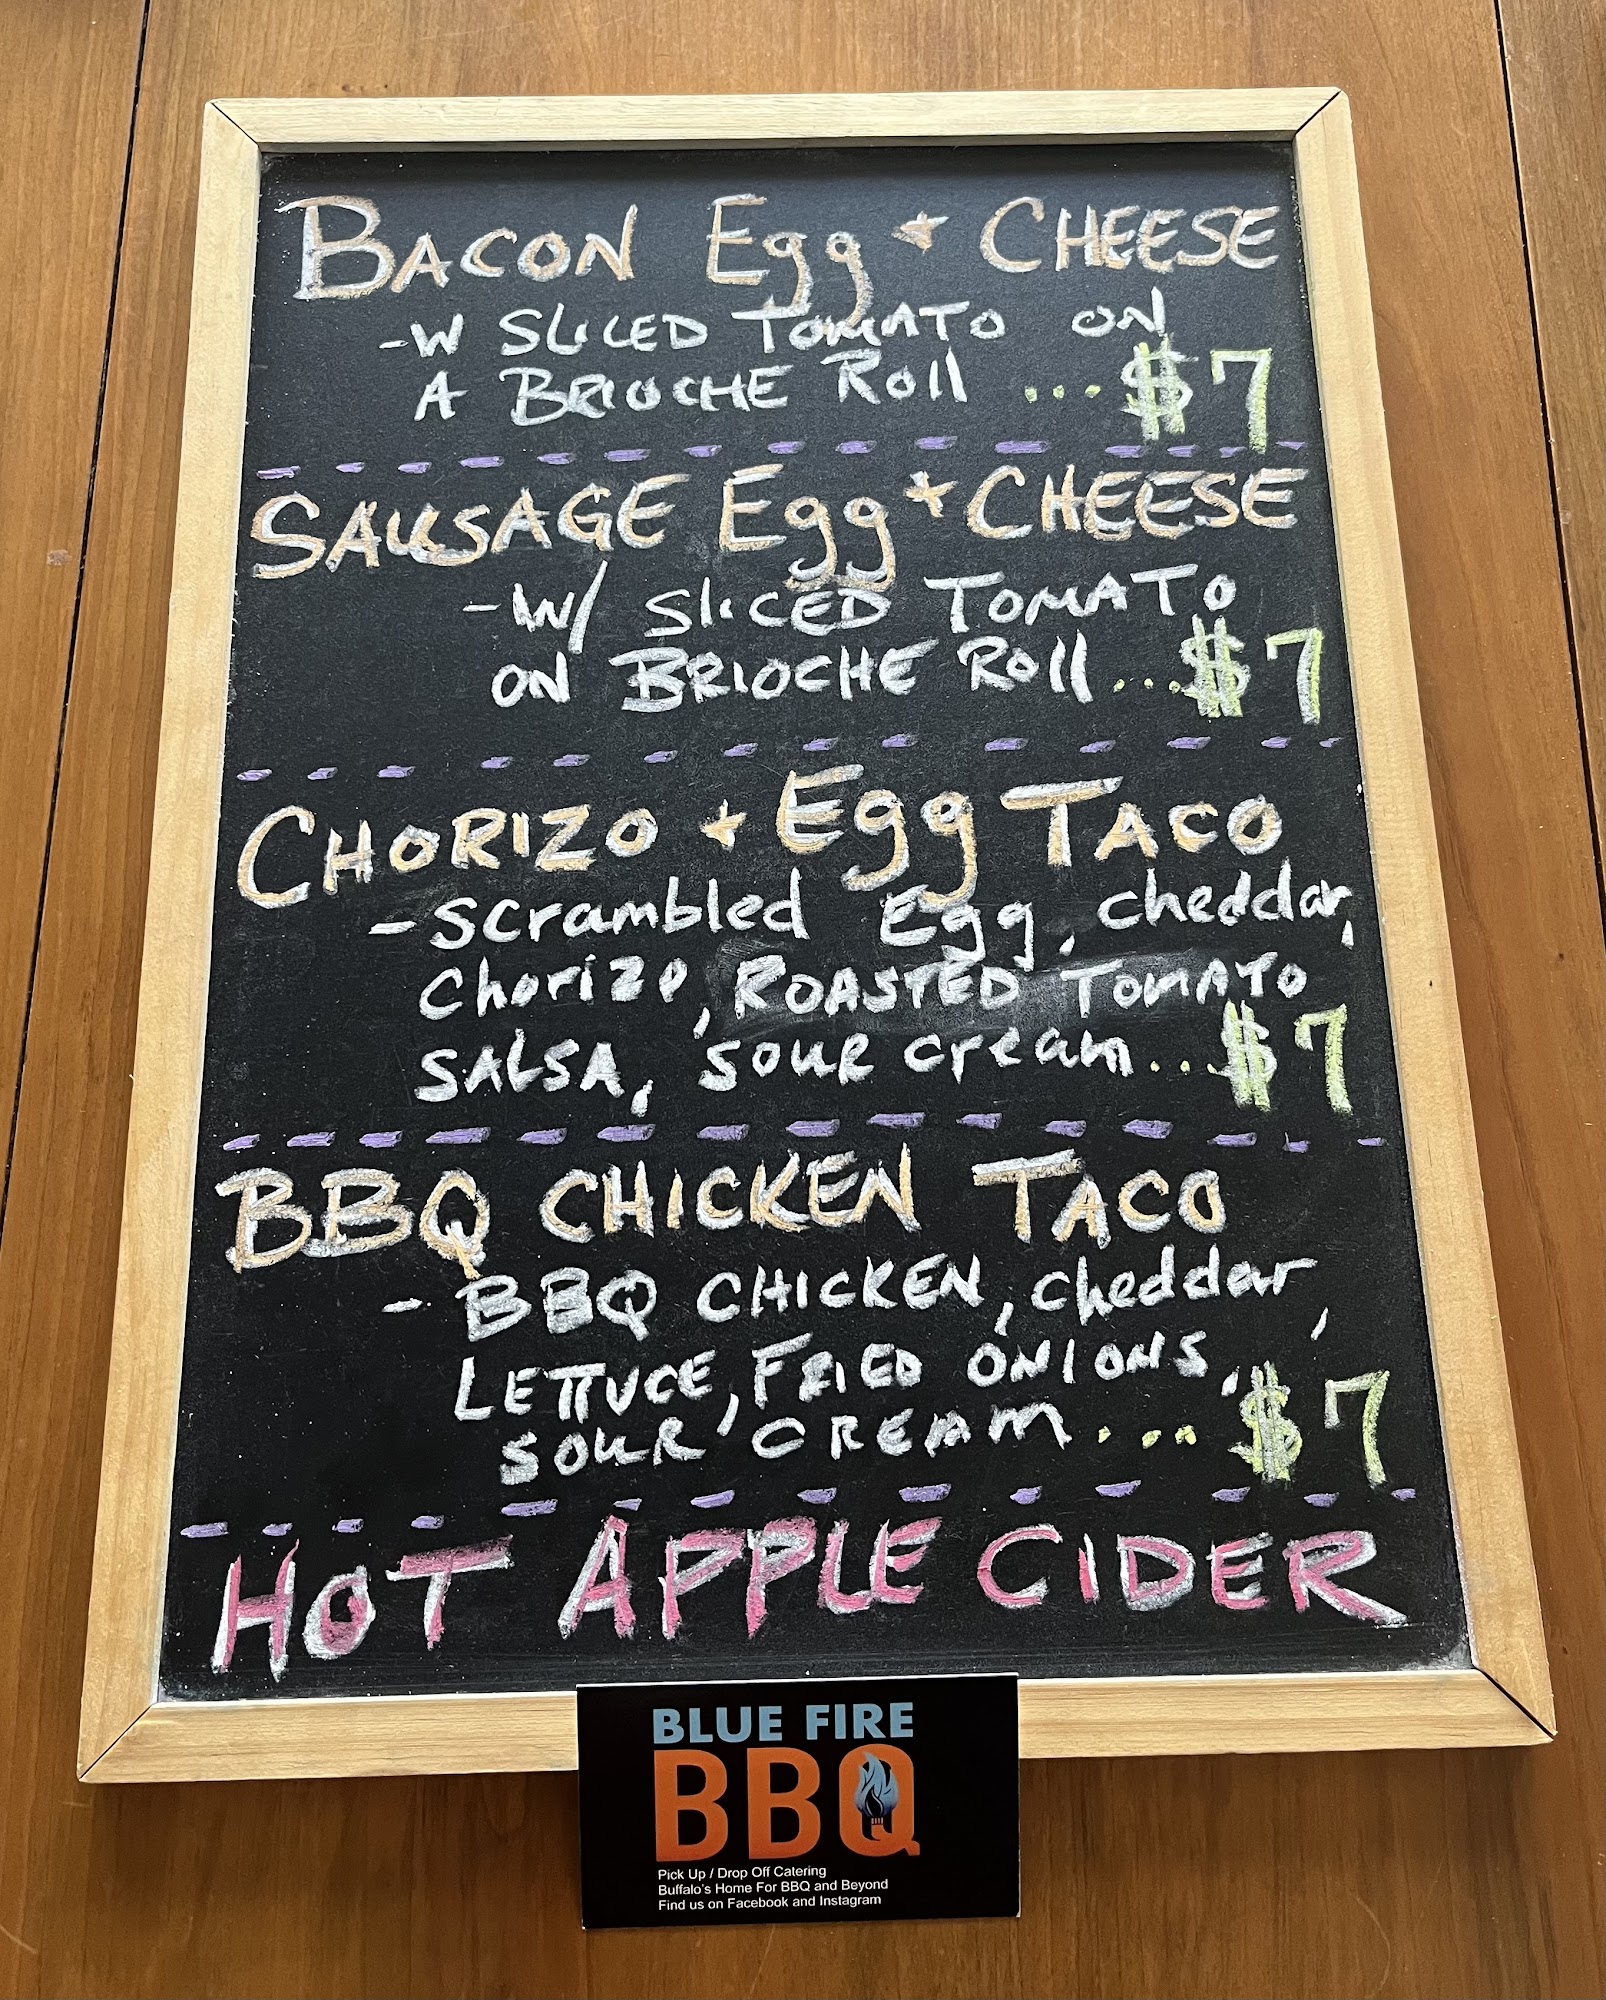 BACON Egg + CHEESE
-W SLICED TOMATO ON
A BRIOCHE Roll ...$7
SAUSAGE Egg + CHEESE
-W/ SLICED TOMATO
ON BRIOCHE Roll ...$7
CHORIZO + Egg TACO
-scrambled Egg, cheddar,
chorizo, ROASTED TOMATO
SALSA, sour cream...$7
BBQ CHICKEN TACO
- BBQ CHICKEN, cheddar,
LETTUCE, FRIED ONIONS,
SOUR CREAM...$7
HOT APPLE CIDER
BLUE FIRE
BBQ
Pick Up / Drop Off Catering
Buffalo's Home For BBQ and Beyond
Find us on Facebook and Instagram